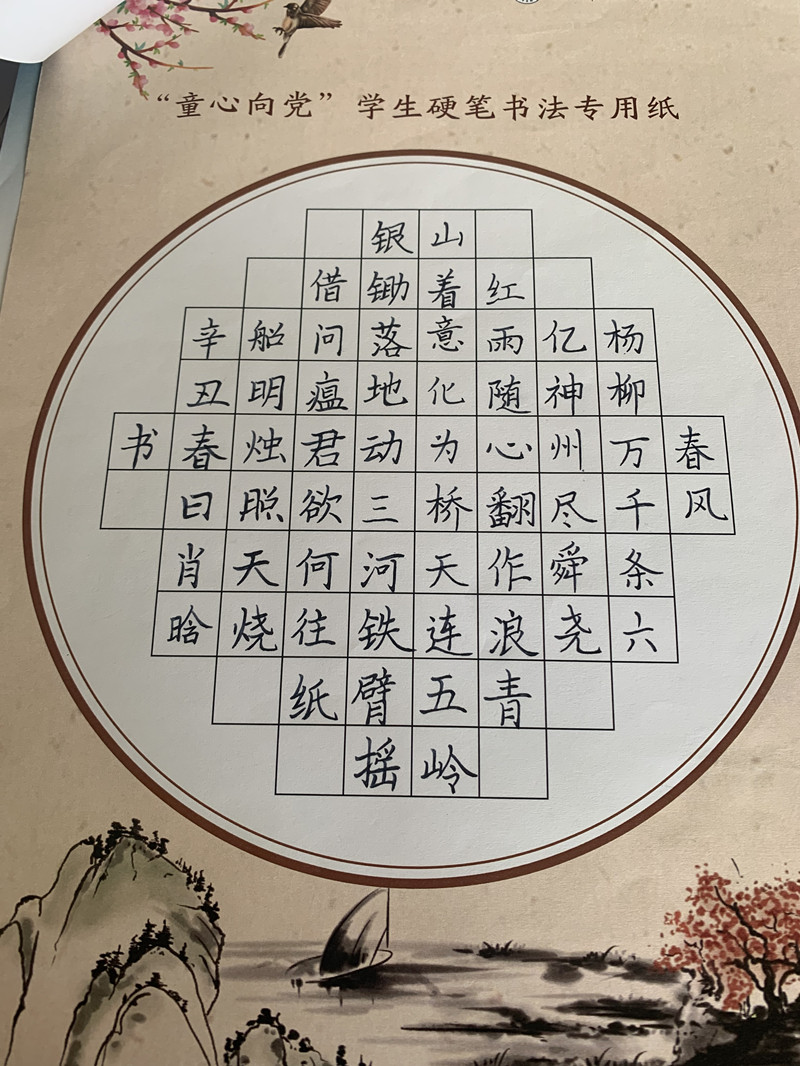 “童心向党”学生硬笔书法专用纸
春风
杨柳万千条六
亿神州尽舜尧
红雨随心翻作浪青
山着意化为桥天连五岭
银锄落地动三河铁臂摇
借问瘟君欲何往纸
船明烛照天烧
辛丑春日肖晗
书